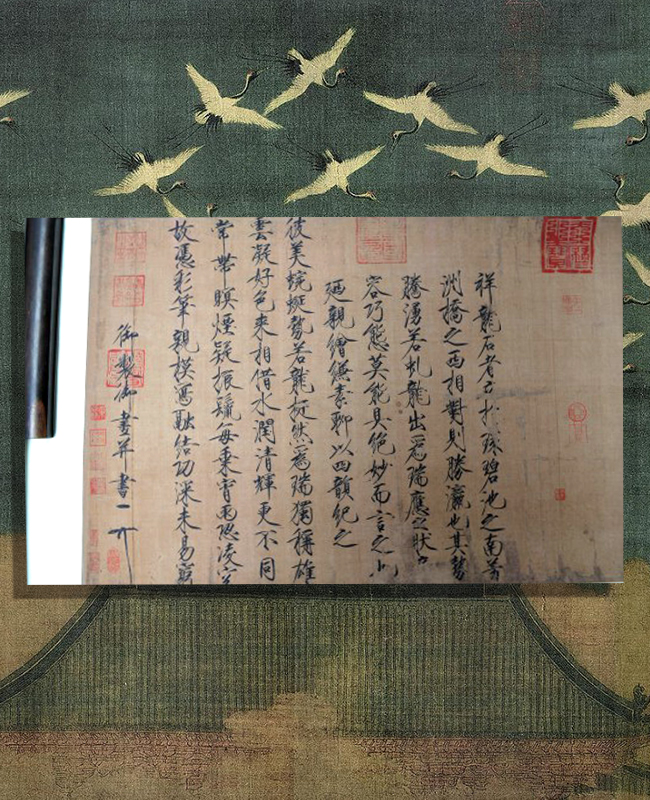 祥龍石者立於環碧池之南芳
洲橋之西相對則勝瀛也其勢
騰湧若虬龍出爲瑞應之狀
容巧態莫能具絕妙而言之
廼親繪縑素聊以四韻紀之
彼美蜿蜒勢若龍挺然爲瑞獨稱雄
雲凝好色來相借水潤清輝更不同
常帶暝煙疑振鬣每乘宵雨恐凌空
故憑彩筆親模寫融結功深未易窮
御製御畫并書